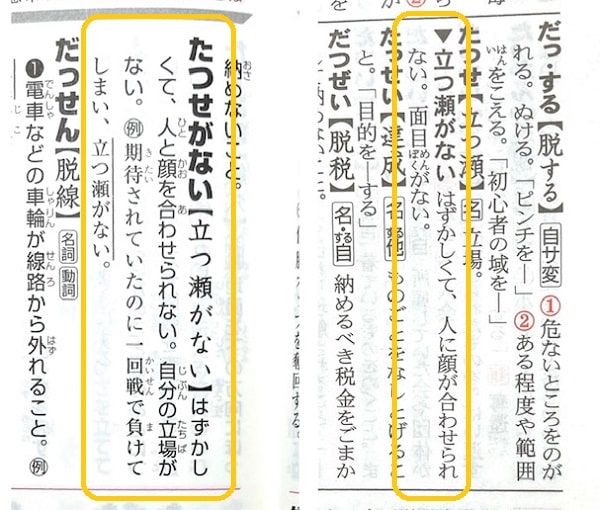 納めないこと。
たつせがない【立つ瀬がない】はずかし
くて、人と顔を合わせられない。自分の立場が
ない。例 期待されていたのに一回戦で負けて
しまい、立つ瀬がない。
だっせん【脱線】名詞 動詞
❶電車などの車輪が線路から外れること。例
だっ・する【脱する】自サ変 ①危ないところをのが
れる。ぬける。「ピンチを―」②ある程度や範囲
をこえる。「初心者の域を―」
たつせ【立つ瀬】名 立場。
▼立つ瀬がない はずかしくて、人に顔が合わせられ
ない。面目がない。
たっせい【達成】名・する他 ものごとをなしとげるこ
と。「目的を―する」
だつぜい【脱税】名・する自 納めるべき税金をごまか